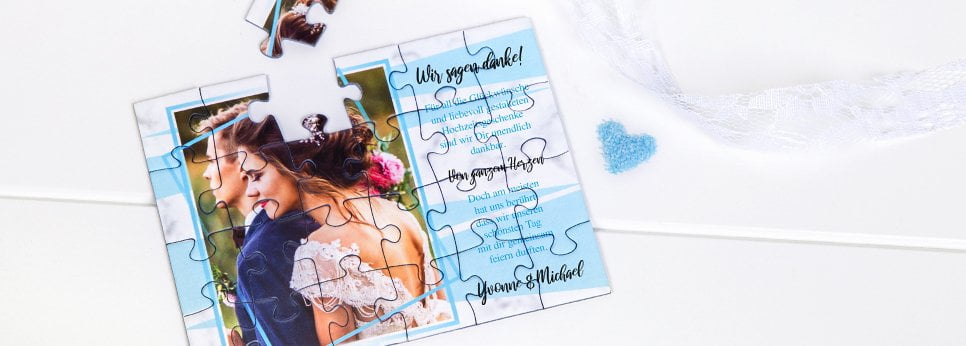 Wir sagen danke!
Für all die Glückwünsche
und liebevoll gestalteten
Hochzeitsgeschenke
sind wir Dir unendlich
dankbar.
Von ganzem Herzen
Doch am meisten
hat uns berührt,
dass wir unseren
schönsten Tag
mit dir gemeinsam
feiern durften.
Yvonne & Michael